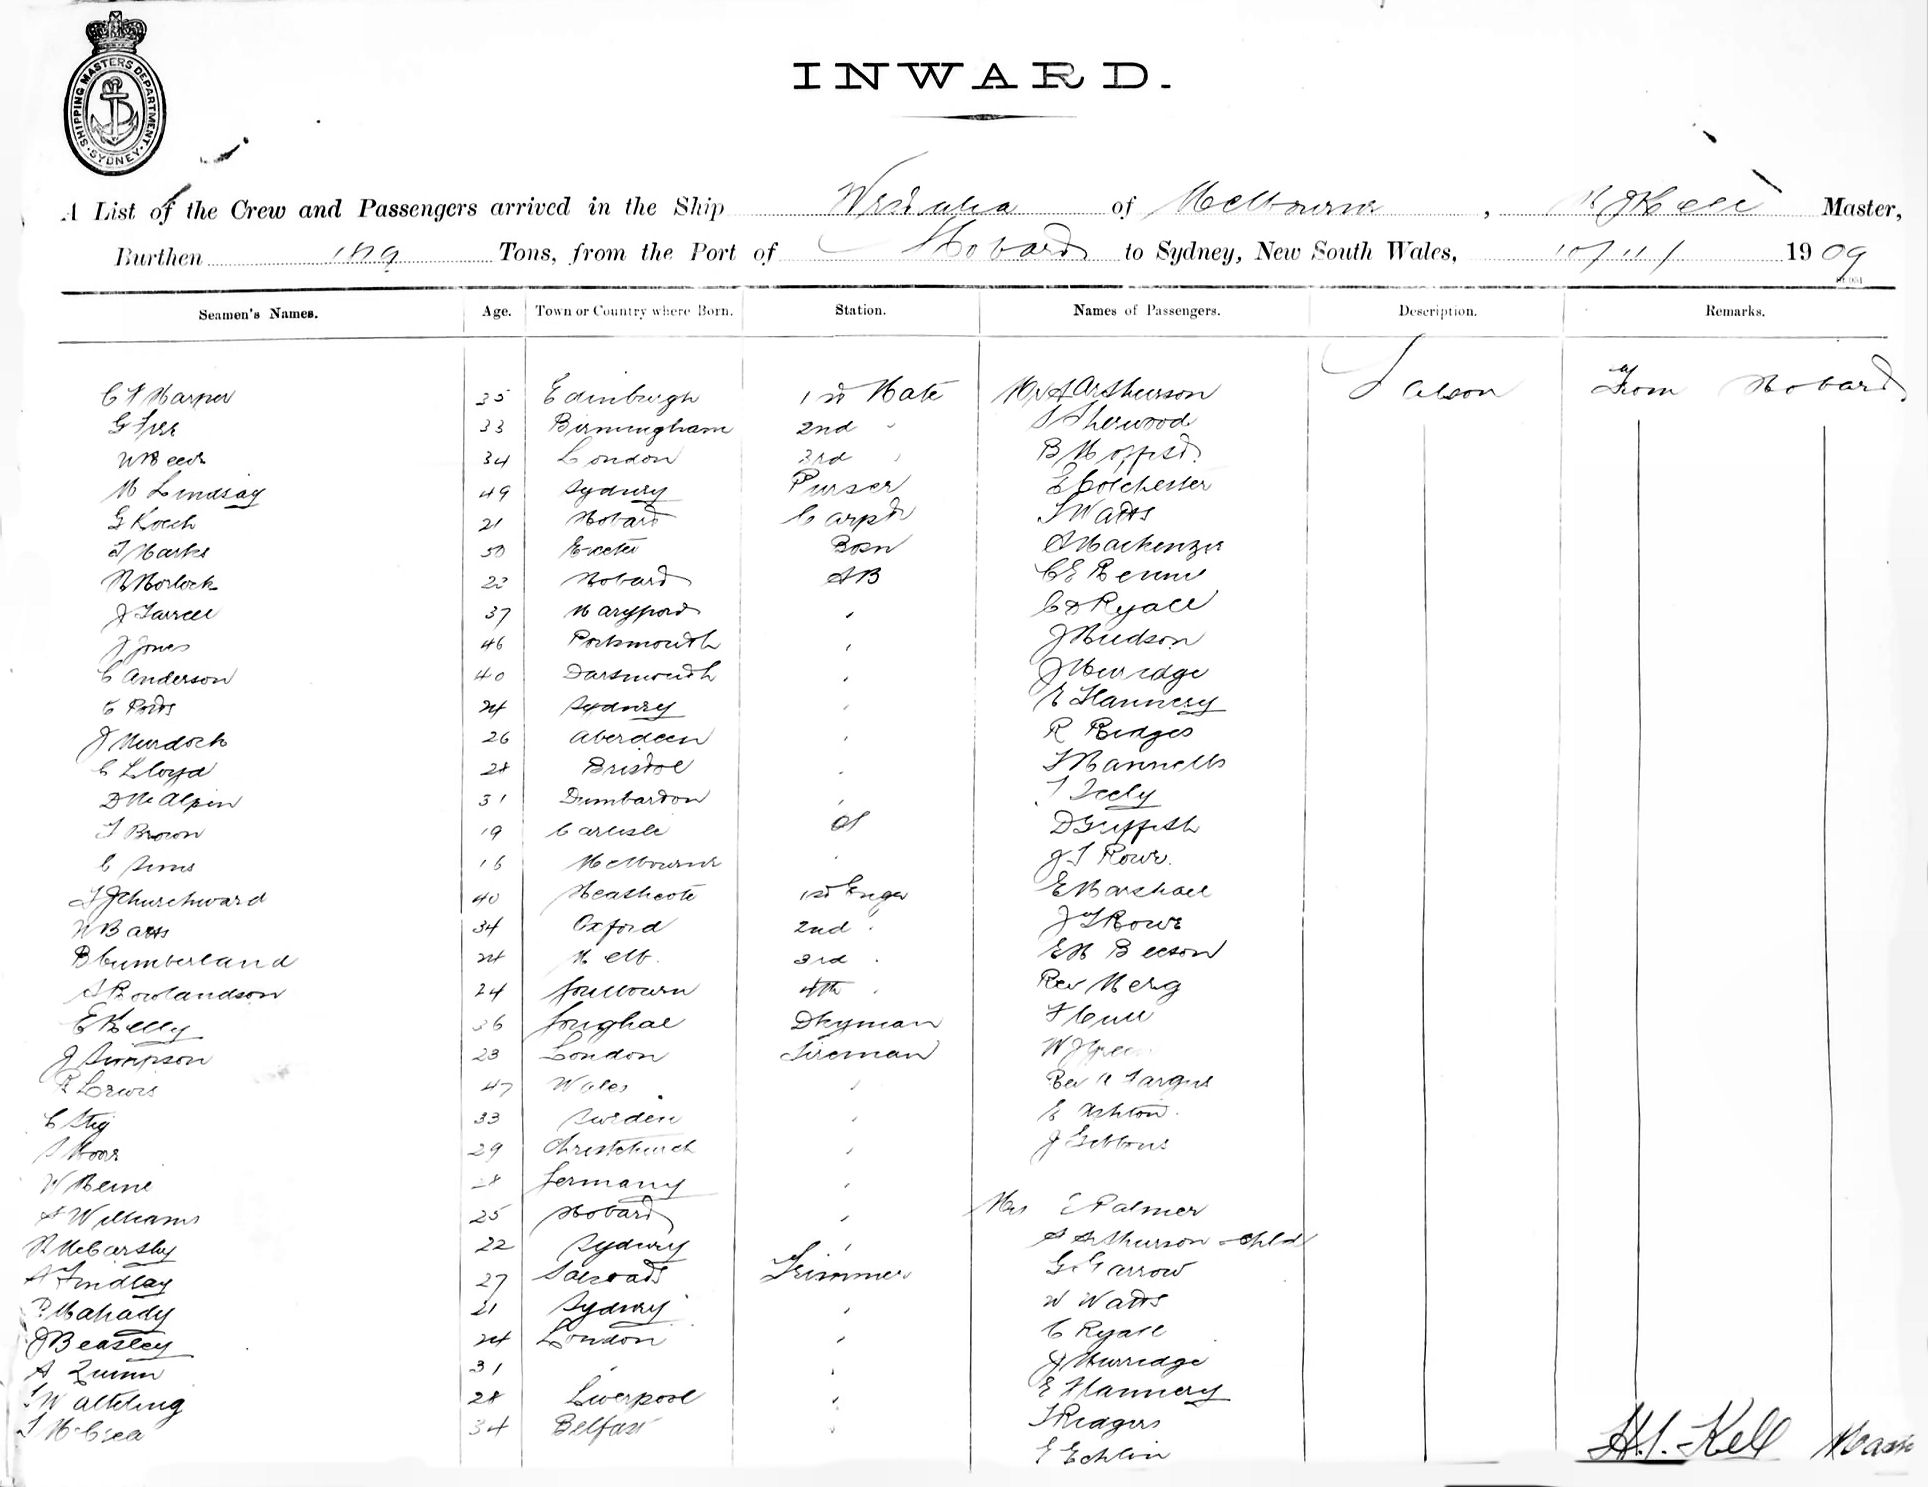 SHIPPING MASTERS DEPARTMENT
SYDNEY
INWARD.
A List of the Crew and Passengers arrived in the Ship Westralia of Melbourne, H J Kell Master,
Burthen 1819 Tons, from the Port of Hobart to Sydney, New South Wales, 10/11/ 1909
Seamen's Names. Age. Town or Country where Born. Station. Names of Passengers. Description. Remarks.
C F Harper 35 Edinburgh 1st Mate Mr A Arthurson Saloon From Hobart
G 33 Birmingham 2nd " S Sherwood
34 London 3rd " B
M Lindsay 49 Sydney Purser E Colchester
G Koch 21 Hobart Carptr T Watts
T Marks 50 Exeter Bosn A Mackenzie
H Horlock 22 Hobart AB C E Rennie
J Farrell 37 Maryport " C D Ryall
J Jones 46 Portsmouth " J Hudson
C Anderson 40 Dartmouth " J Burridge
E Potts 24 Sydney " E Flannery
J Murdoch 26 Aberdeen " R Ridges
C Lloyd 28 Bristol "
D McAlpin 31 Dumbarton " T
T Brown 19 Carlisle OS D Griffith
C Sims 16 Melbourne " J T Rowe
T J Churchward 40 Heathcote 1st Enger E Marshall
W Batts 34 Oxford 2nd " J T Rowe
B Cumberland 24 Melb. 3rd " E H Beeson
S Rowlandson 24 Goulbourn 4th " Rev Merg
E Kelly 36 Youghal Dkyman F Cull
J Simpson 23 London Fireman W J Green
R Lewis 47 Wales " Rev A Fargus
C Stig 33 Sweden " E Ashton
S Moar 29 Christchurch " J Gibbons
W Beine 28 Germany "
A Williams 25 Hobart " Mrs E Palmer
H McCarthy 22 Sydney " A Arthurson & Chld
A Findlay 27 Trimmer G Garrow
P Mahady 21 Sydney " W Watts
J Beasley 24 London " C Ryall
A Quinn 31 " " J Burridge
T W 28 Liverpool " E Flannery
T McCrea 34 Belfast " T Ridgers
E Echlin
H.J. Kell Master